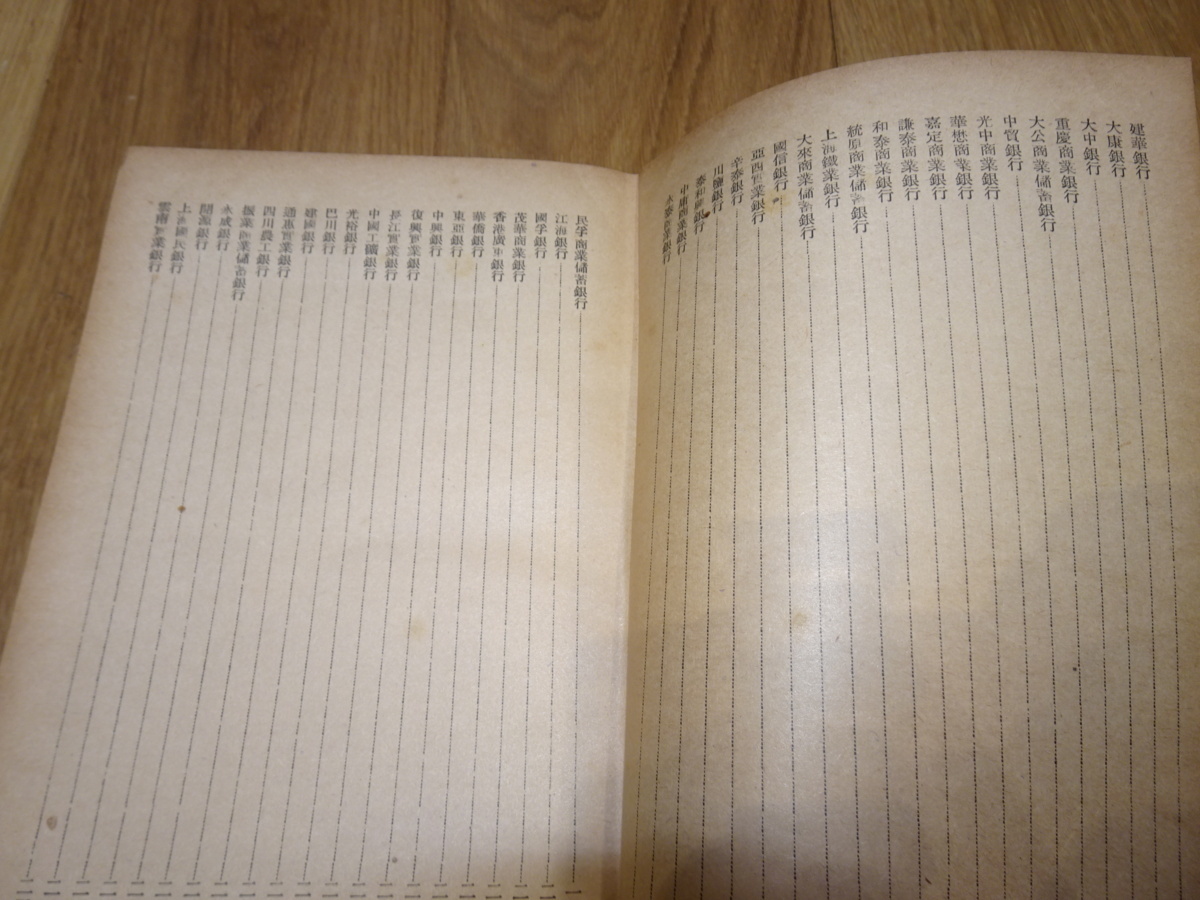 建華銀行
大康銀行
大中銀行
重慶商業銀行
大公商業儲蓄銀行
中貿銀行
光中商業銀行
華懋商業銀行
嘉定商業銀行
謙泰商業銀行
和泰商業銀行
統原商業儲蓄銀行
上海鐵業銀行
大來商業儲蓄銀行
國信銀行
亞西實業銀行
辛泰銀行
川鹽銀行
泰和興銀行
中庸商業銀行
永泰 銀行
民孚商業儲蓄銀行
江海銀行
國孚銀行
茂華商業銀行
香港廣東銀行
華僑銀行
東亞銀行
中興銀行
復興實業銀行
長江實業銀行
中國工礦銀行
光裕銀行
巴川銀行
建國銀行
通惠實業銀行
四川農工銀行
銀行
永成銀行
開源銀行
上海國民銀行
雲南實業銀行